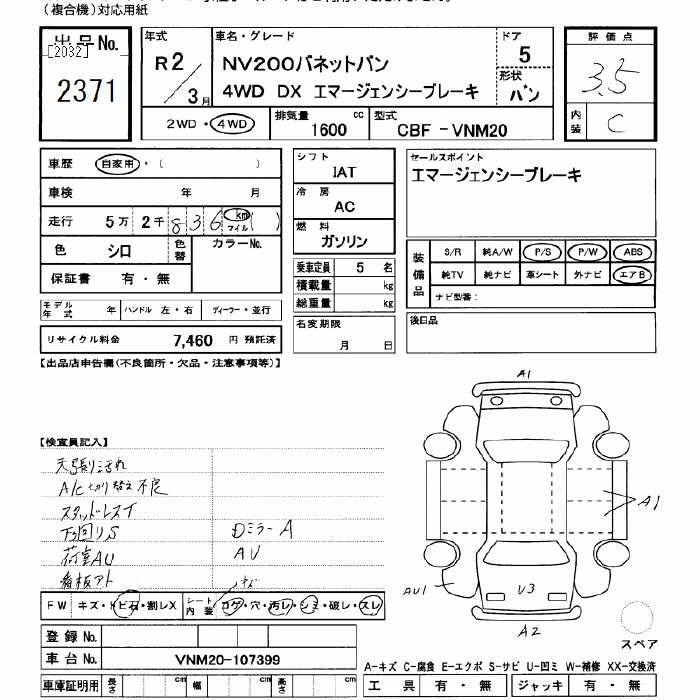 (複合機)対応用紙
出品No.
[2032]
2371
年式
R2/3月
車名・グレード
NV200バネットバン
4WD DX エマージェンシーブレーキ
ドア
5
形状
バン
評価点
3.5
内装
C
2WD・4WD
排気量
1600 cc
型式
CBF-VNM20
車歴 自家用・( )
車検 年 月
走行 5万 2千 8 3 6 km マイル ( )
色 シロ 色替 カラーNo.
保証書 有・無
モデル年式 年 ハンドル 左・右 ディーラー・並行
リサイクル料金 7,460 円 預託済
シフト
IAT
冷房
AC
燃料
ガソリン
乗車定員 5 名
積載量 kg
総重量 kg
名変期限
月 日
セールスポイント
エマージェンシーブレーキ
装備品
S/R 純A/W P/S P/W ABS
純TV 純ナビ 革シート 外ナビ エアB
ナビ型番:
後日品
【出品店申告欄(不良箇所・欠品・注意事項等)】
【検査員記入】
天張り汚れ
A/C切り替え不良
スタッドレス
下回りS
荷室AU
看板アト
DミラーA
AU
FW キズ・トビ石・割レX
シート内装 コゲ・穴・汚レ・シミ・破レ・スレ
登録No.
車台No. VNM20-107399
車庫証明用 長さ cm 幅 cm 高さ cm
A1
A1
AU1
U3
A2
スペア
A-キズ C-腐食 E-エクボ S-サビ U-凹ミ W-補修 XX-交換済
工具 有・無 ジャッキ 有・無